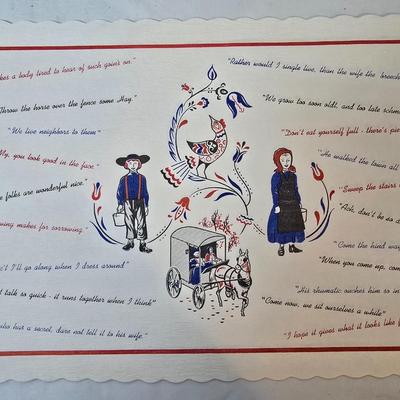 kes a body tired to hear of such goin's on."
Throw the horse over the fence some Hay."
"We live neighbors to them"
My, you look good in the face.
e folks are wonderful nice."
wing makes for sorrowing."
n't I'll go along when I dress around"
t talk so quick - it runs together when I think"
who has a secret, dare not tell it to his wife."
"Rather would I single live, than the wife the breeche
"We grow too soon oldt, and too late schm
"Don't eat yourself full - there's pie
"He walked the town all
"Sweep the stairs
"Ach, don't be so d
"Come the hind way
"When you come up, come
"His rhumatic ouches him so in
"Come now, we sit ourselves a while"
"I hope it gives what it looks like f